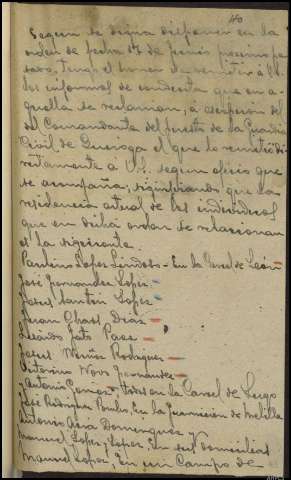 40
Segun se digna disponer en la
orden de fecha 17 de Junio proximo pa-
sado, tengo el honor de remitir á V.S.
los informes de conducta que en a-
quella se reclaman, á excepcion del
del Comandante del puesto de la Guardia
Civil de Quiroga el que lo remitió di-
rectamente á V.S. segun oficio que
se acompaña, significando que la
residencia actual de los individuos
que en dicha orden se relacionan
es la siguiente.
Lopez - En la Carcel de León
José Fernandez Lopez
Jesus Santin Lopez
Juan Diaz
Jato
Jesus Rodriguez
Novo Fernandez
y Antonio Gomez - todos en la Carcel de Lugo
José Rodriguez En la guarnición de Melilla
Antonio Domenguez y
Manuel Lopez Lopez, En sus domicilios
Manuel Lopez, En un Campo de